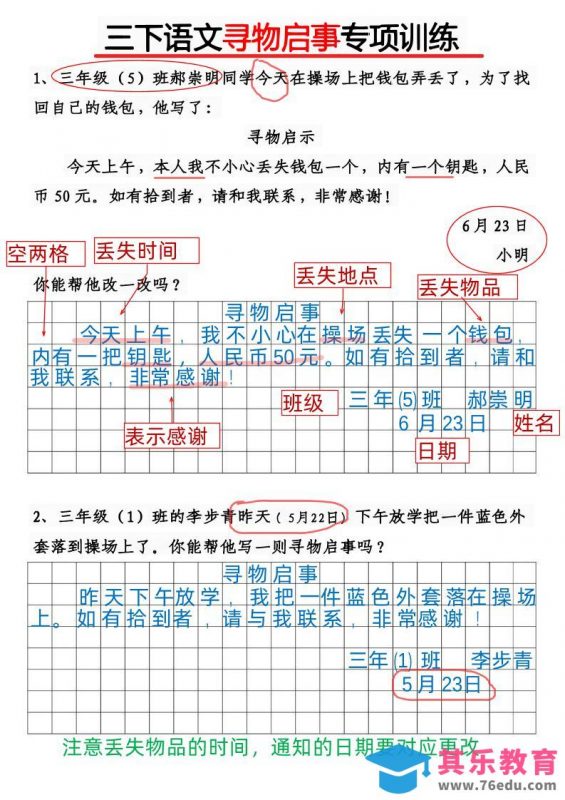 三下语文寻物启事专项训练
1、三年级（5）班郝崇明同学今天在操场上把钱包弄丢了，为了找
回自己的钱包，他写了：
寻物启示
今天上午，本人我不小心丢失钱包一个，内有一个钥匙，人民
币 50 元。如有拾到者，请和我联系，非常感谢！
6 月 23 日
小明
空两格
丢失时间
丢失地点
丢失物品
你能帮他改一改吗？
寻物启事
今天上午，我不小心在操场丢失一个钱包，
内有一把钥匙，人民币50元。如有拾到者，请和
我联系，非常感谢！
班级
三年(5)班 郝崇明
6月23日
姓名
表示感谢
日期
2、三年级（1）班的李步青昨天（5月22日）下午放学把一件蓝色外
套落到操场上了。你能帮他写一则寻物启事吗？
寻物启事
昨天下午放学，我把一件蓝色外套落在操场
上。如有拾到者，请与我联系，非常感谢！
三年(1)班 李步青
5月23日
注意丢失物品的时间，通知的日期要对应更改
其乐教育
www.76edu.com